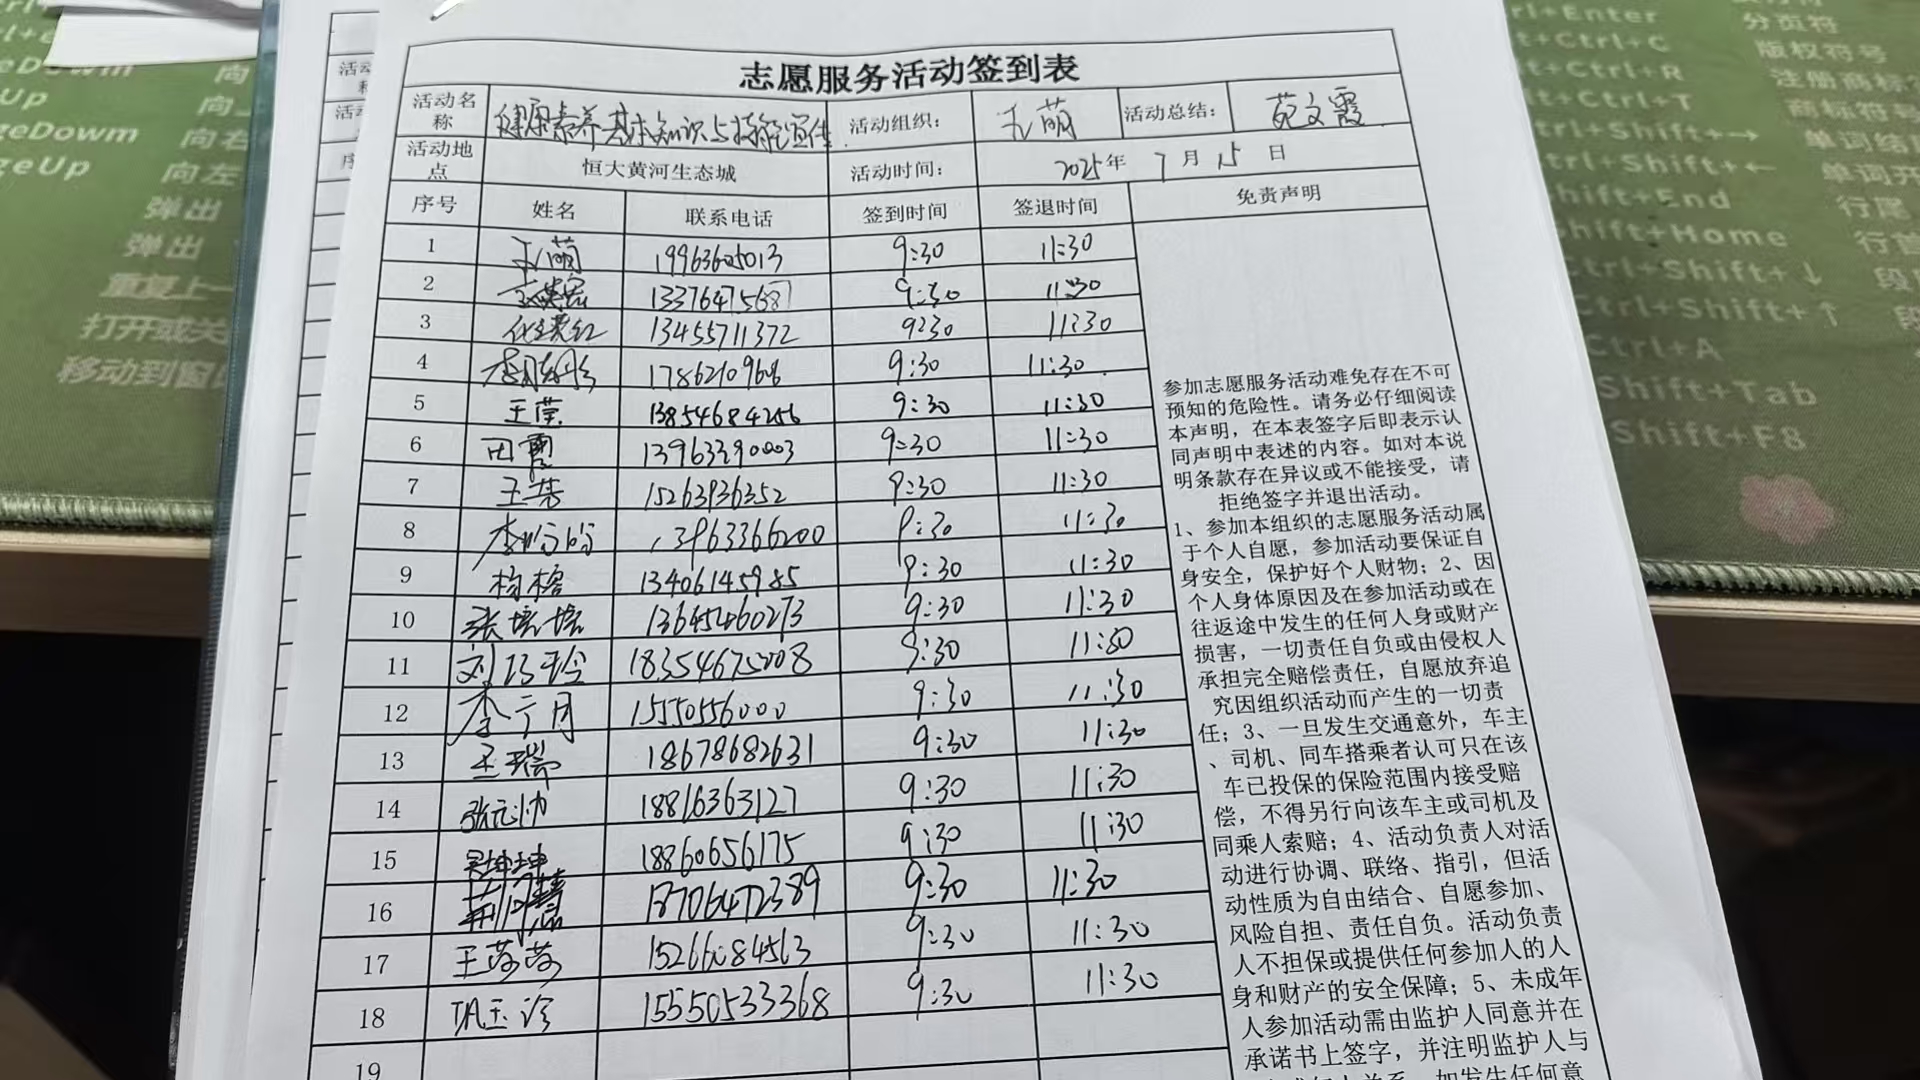 志愿服务活动签到表
活动名称 健康素养基本知识与技能宣传 活动组织： 孔萌 活动总结： 苑文霞
活动地点 恒大黄河生态城 活动时间： 2025年 7月 15日
序号 姓名 联系电话 签到时间 签退时间 免责声明
1 孔萌 19963605013 9:30 11:30
2 1337647568 9:30 11:30
3 13455711372 9:30 11:30
4 17862109606 9:30 11:30
5 王莹 13854684256 9:30 11:30
6 田霞 13963390003 9:30 11:30
7 15263936352 9:30 11:30
8 李盼盼 13963366200 9:30 11:30
9 杨榕 13406145985 9:30 11:30
10 张培培 13645460273 9:30 11:30
11 刘巧玲 18354675008 9:30 11:30
12 李月 15550556000 9:30 11:30
13 王瑞 18678682631 9:30 11:30
14 张元帅 18816363127 9:30 11:30
15 吴坤坤 18860656175 9:30 11:30
16 18706472389 9:30 11:30
17 15266084563 9:30 11:30
18 巩玉珍 15550533368 9:30 11:30
19
参加志愿服务活动难免存在不可
预知的危险性。请务必仔细阅读
本声明，在本表签字后即表示认
同声明中表述的内容。如对本说
明条款存在异议或不能接受，请
拒绝签字并退出活动。
1、参加本组织的志愿服务活动属
于个人自愿，参加活动要保证自
身安全，保护好个人财物；2、因
个人身体原因及在参加活动或在
往返途中发生的任何人身或财产
损害，一切责任自负或由侵权人
承担完全赔偿责任，自愿放弃追
究因组织活动而产生的一切责
任；3、一旦发生交通意外，车主
、司机、同车搭乘者认可只在该
车已投保的保险范围内接受赔
偿，不得另行向该车主或司机及
同乘人索赔；4、活动负责人对活
动进行协调、联络、指引，但活
动性质为自由结合、自愿参加、
风险自担、责任自负。活动负责
人不担保或提供任何参加人的人
身和财产的安全保障；5、未成年
人参加活动需由监护人同意并在
承诺书上签字，并注明监护人与
如发生任何意
Up
向
向上
geDowm
向右
geUp
向左
弹出
弹出
重复上一
打开或关
移动到窗
rl+Enter 分页符
t+Ctrl+C 版权符号
Ctrl+R 注册商标
Ctrl+T 商标符号
Ctrl+Shift+→ 单词结
rl+Shift+← 单词开
hift+End 行尾
Shift+Home 行首
Ctrl+Shift+↓
Ctrl+Shift+↑
Ctrl+A
Shift+Tab
Shift+F8